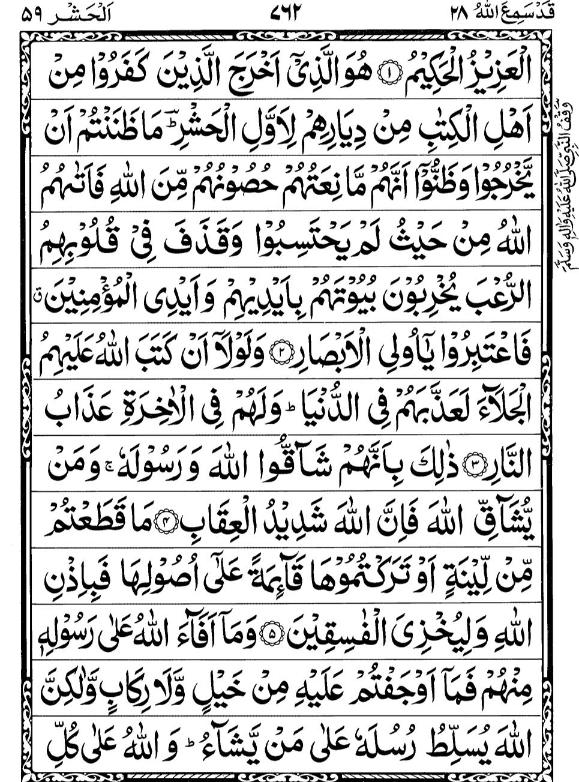 قَدْ سَمِعَ اللهُ ٢٨
٧٦٢
اَلْحَشْر ٥٩
الْعَزِيْزُ الْحَكِيْمُ ۝١ هُوَ الَّذِيْۤ اَخْرَجَ الَّذِيْنَ كَفَرُوْا مِنْ
اَهْلِ الْكِتٰبِ مِنْ دِيَارِهِمْ لِاَوَّلِ الْحَشْرِ ؕ مَا ظَنَنْتُمْ اَنْ
يَّخْرُجُوْا وَظَنُّوْۤا اَنَّهُمْ مَّانِعَتُهُمْ حُصُوْنُهُمْ مِّنَ اللهِ فَاَتٰىهُمُ
اللهُ مِنْ حَيْثُ لَمْ يَحْتَسِبُوْا وَقَذَفَ فِيْ قُلُوْبِهِمُ
الرُّعْبَ يُخْرِبُوْنَ بُيُوْتَهُمْ بِاَيْدِيْهِمْ وَاَيْدِى الْمُؤْمِنِيْنَ ۗ
فَاعْتَبِرُوْا يٰۤاُولِى الْاَبْصَارِ ۝٢ وَلَوْلَاۤ اَنْ كَتَبَ اللهُ عَلَيْهِمُ
الْجَلَآءَ لَعَذَّبَهُمْ فِى الدُّنْيَا ؕ وَلَهُمْ فِى الْاٰخِرَةِ عَذَابُ
النَّارِ ۝٣ ذٰلِكَ بِاَنَّهُمْ شَآقُّوا اللهَ وَرَسُوْلَهٗ ۚ وَمَنْ
يُّشَآقِّ اللهَ فَاِنَّ اللهَ شَدِيْدُ الْعِقَابِ ۝٤ مَا قَطَعْتُمْ
مِّنْ لِّيْنَةٍ اَوْ تَرَكْتُمُوْهَا قَآئِمَةً عَلٰۤى اُصُوْلِهَا فَبِاِذْنِ
اللهِ وَلِيُخْزِىَ الْفٰسِقِيْنَ ۝٥ وَمَاۤ اَفَآءَ اللهُ عَلٰى رَسُوْلِهٖ
مِنْهُمْ فَمَاۤ اَوْجَفْتُمْ عَلَيْهِ مِنْ خَيْلٍ وَّلَا رِكَابٍ وَّلٰكِنَّ
اللهَ يُسَلِّطُ رُسُلَهٗ عَلٰى مَنْ يَّشَآءُ ؕ وَاللهُ عَلٰى كُلِّ
وقف النبي صلى الله عليه واله وسلم